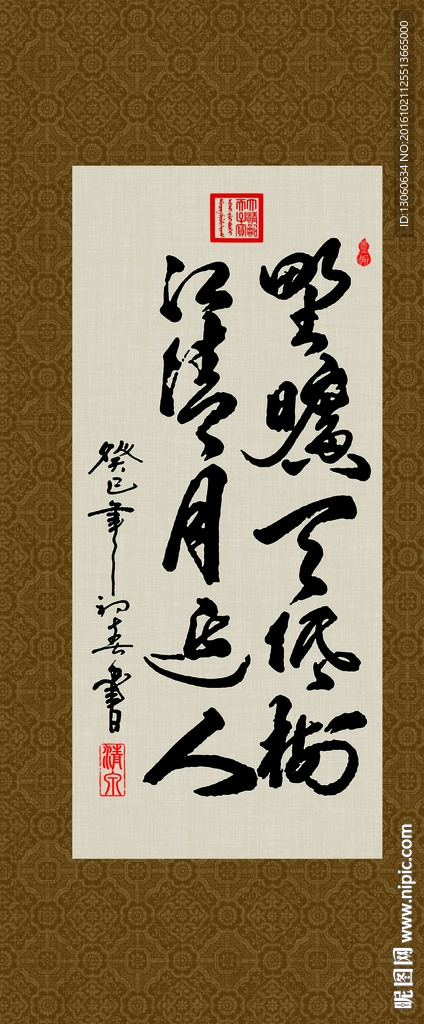 野曠天低樹
江清月近人
癸巳年初春書
清泉
ID:13060634 NO:20161021125513665000
昵图网 www.nipic.com